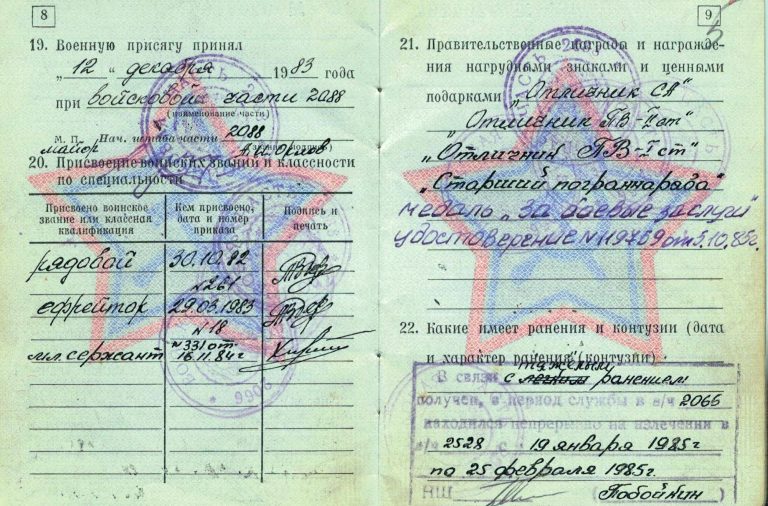 8
19. Военную присягу принял
„12" декабря 1983 года
при войсковой части 2088
(наименование части)
М. П. Нач. штаба части 2088
майор
20. Присвоение воинских званий и классности
по специальности
Присвоено воинское звание или классная квалификация
Кем присвоено, дата и номер приказа
Подпись и печать
рядовой 30.10.82
№261
ефрейтор 29.03.1983
№18
мл. сержант №331 от 16.11.84г
9
21. Правительственные награды и награжде-
ния нагрудными знаками и ценными
подарками „Отличник СА"
„Отличник ПВ-II ст"
„Отличник ПВ-I ст"
„Старший погранnаряда"
медаль „За боевые заслуги"
удостоверение №119759 от 5.10.85г.
22. Какие имеет ранения и контузии (дата
и характер ранения (контузии)
тяжелым
В связи с легким ранением
получен. в период службы в в/ч 2066
находился непрерывно на излечении в
в/ч 2528 с 19 января 1985г
по 25 февраля 1985г
НШ (Побойкин)